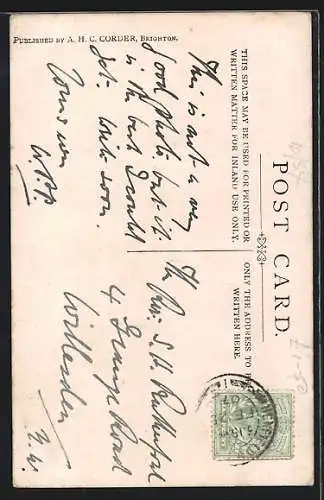 PUBLISHED BY A. H. C. CORDER, BRIGHTON.
POST CARD.
THIS SPACE MAY BE USED FOR PRINTED OR
WRITTEN MATTER FOR INLAND USE ONLY.
ONLY THE ADDRESS TO BE
WRITTEN HERE.
This is not a very
good photo but it
is the best I could
get. Write soon.
Yours ever
The Rev. S. H. Rutherford
4 Grange Road
Willesden
N.W.